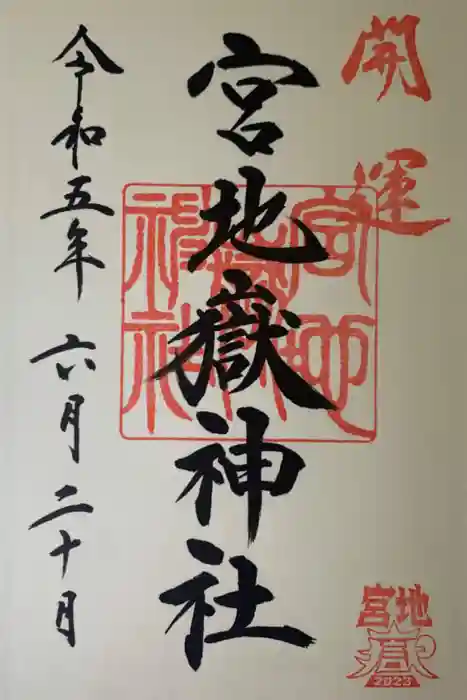 開運
宮地嶽神社
宮地嶽神社
令和五年 六月二十日
宮地
2023